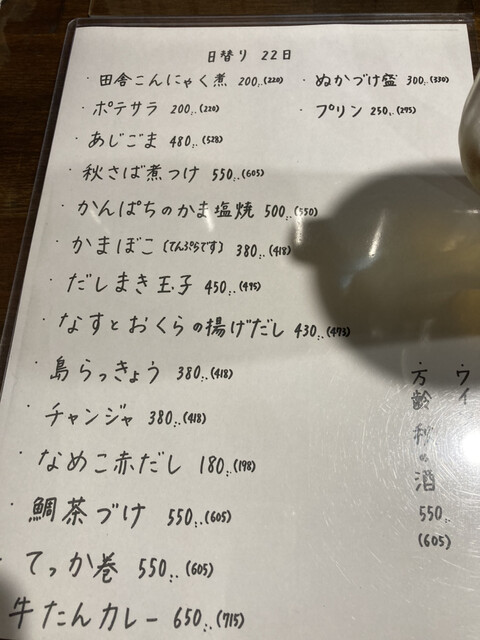 日替り 22日
・田舎こんにゃく煮 200.-(220)
・ぬかづけ盛 300.-(330)
・ポテサラ 200.-(220)
・プリン 250.-(275)
・あじごま 480.-(528)
・秋さば煮つけ 550.-(605)
・かんぱちのかま塩焼 500.-(550)
・かまぼこ〔てんぷらです〕 380.-(418)
・だしまき玉子 450.-(495)
・なすとおくらの揚げだし 430.-(473)
・島らっきょう 380.-(418)
・チャンジャ 380.-(418)
・なめこ赤だし 180.-(198)
・鯛茶づけ 550.-(605)
・てっか巻 550.-(605)
牛たんカレー 650.-(715)
・ウイ
・万齢 秋の酒 550.-
(605)